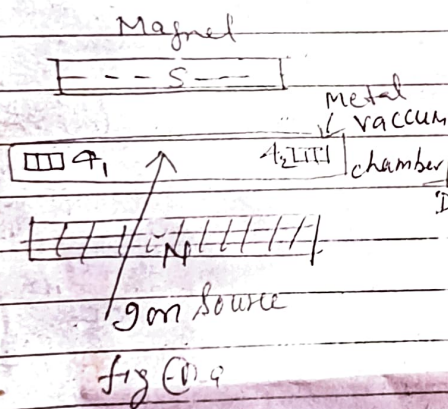 Magnet
S
Metal
vaccum
chamber
φ₁
φ₂
N
Ion Source
fig (1).a